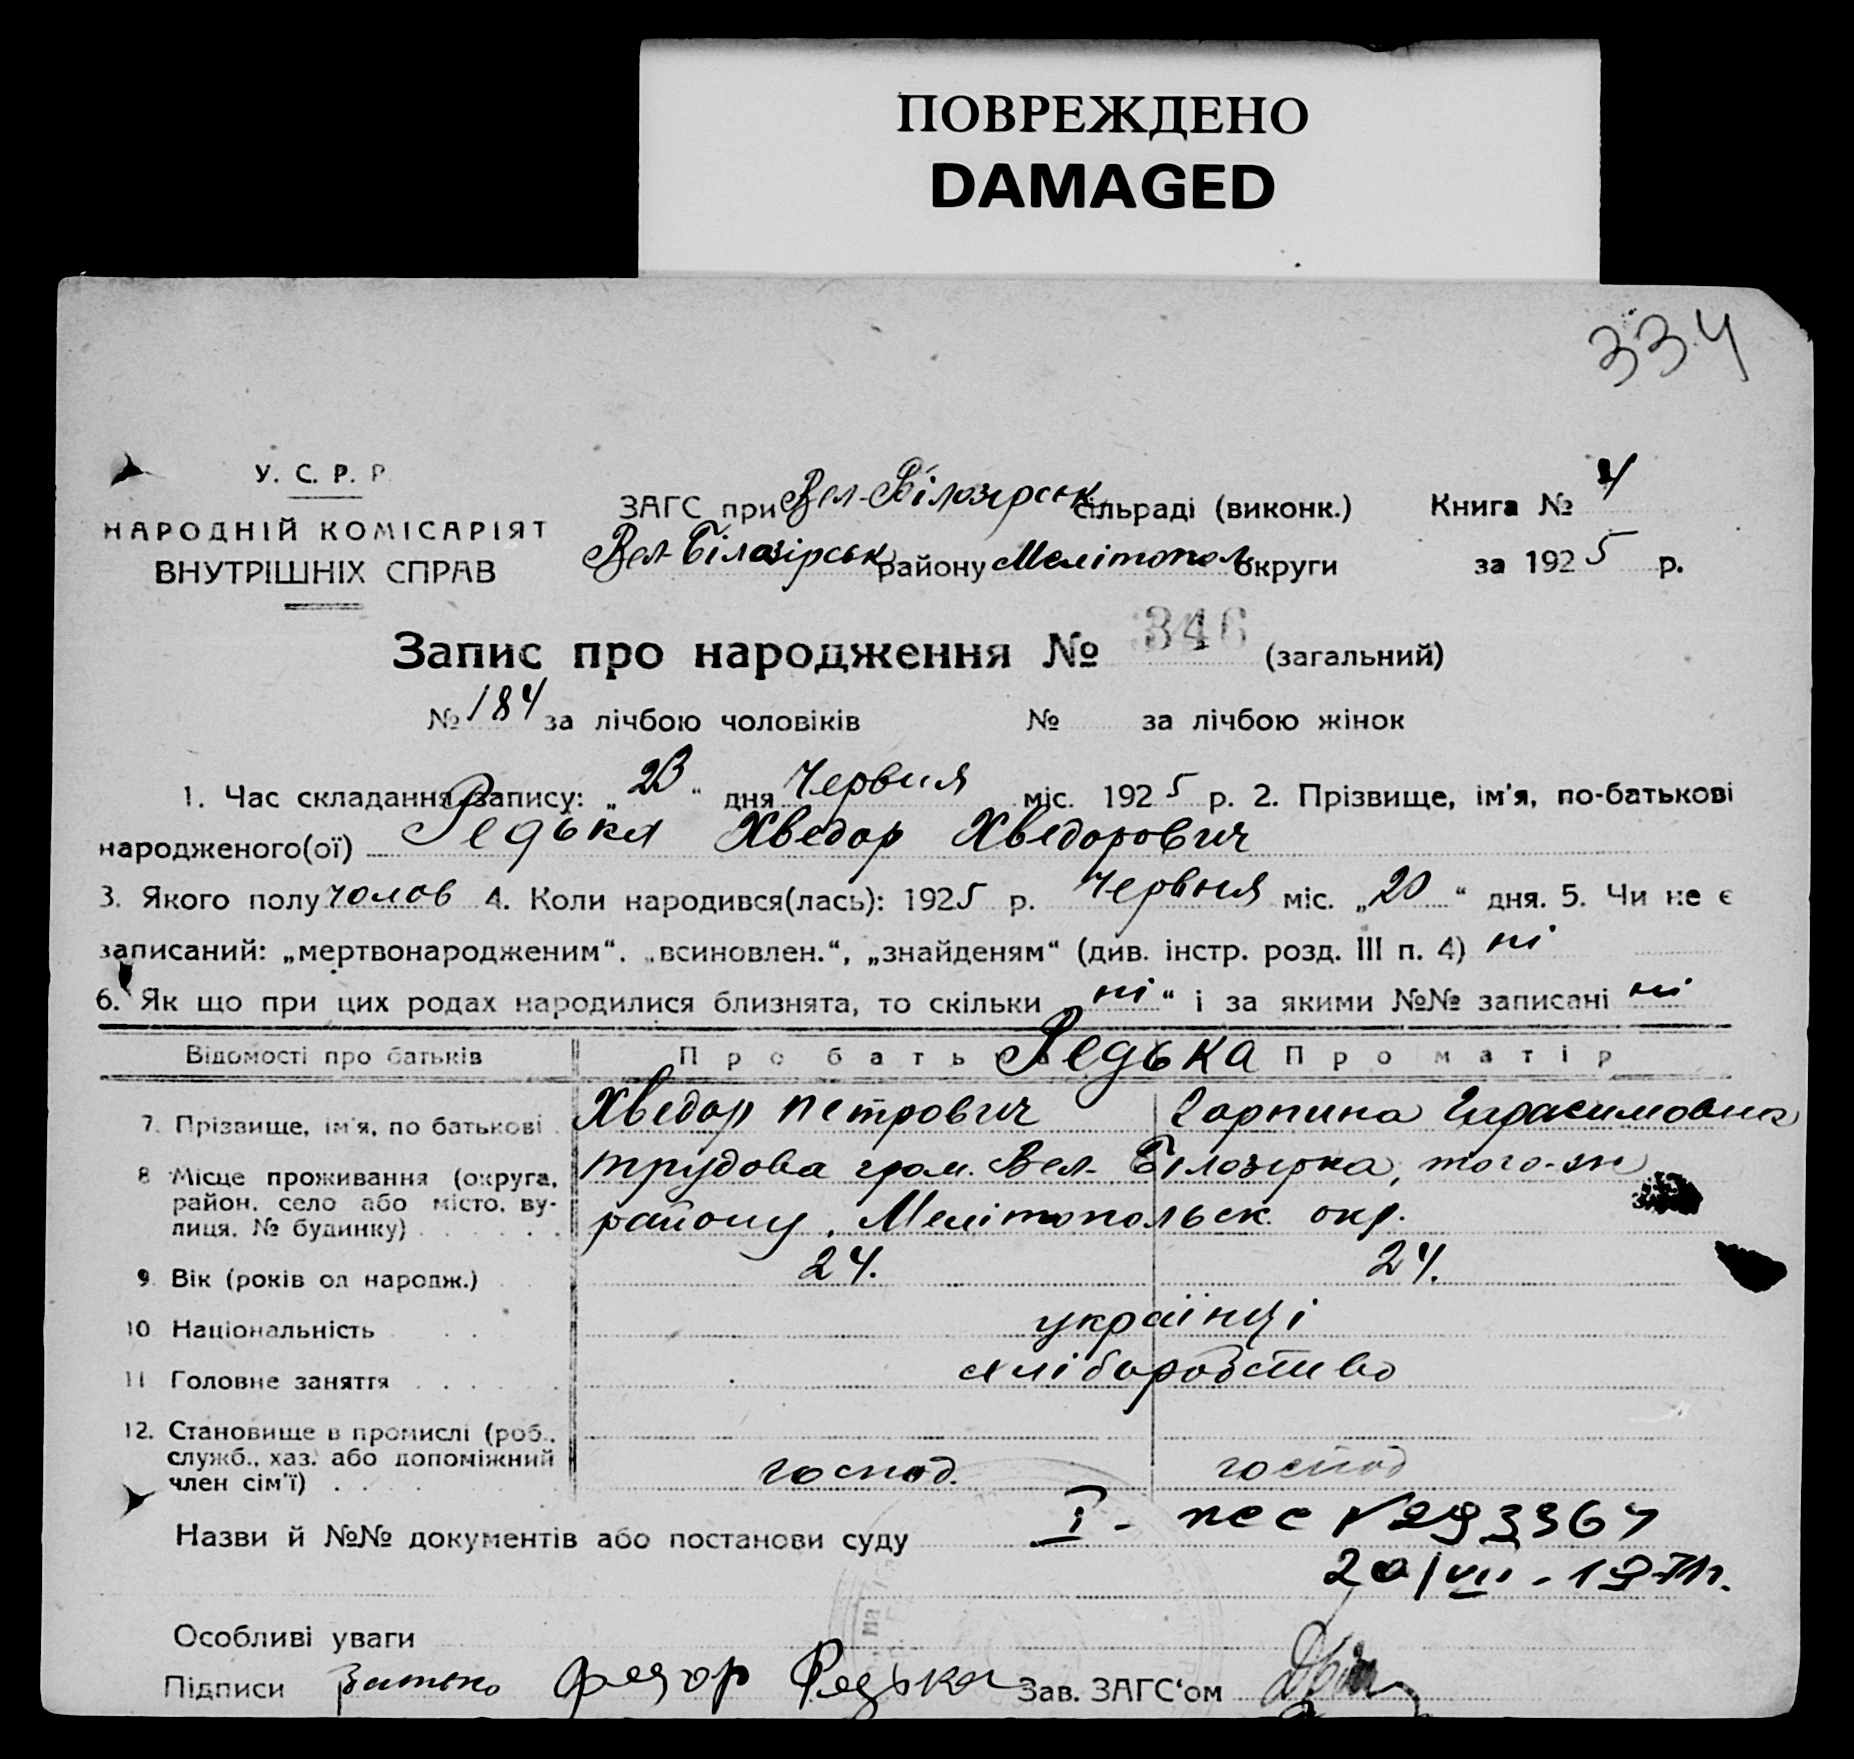 ПОВРЕЖДЕНО
DAMAGED
334
У. С. Р. Р.
НАРОДНІЙ КОМІСАРІЯТ
ВНУТРІШНІХ СПРАВ
ЗАГС при Вел-Білозірськ сільраді (виконк.) Книга № 4
Вел-Білозірськ району Мелітопол округи за 1925 р.
Запис про народження № 346 (загальний)
№ 184 за лічбою чоловіків № за лічбою жінок
1. Час складання запису: „23“ дня Червня міс. 1925 р. 2. Прізвище, ім'я, по-батькові
народженого(ої) Редька Хведор Хведорович
3. Якого полу чолов 4. Коли народився(лась): 1925 р. Червня міс. „20“ дня. 5. Чи не є
записаний: „мертвонародженим“. „всиновлен.“, „знайденям“ (див. інстр. розд. III п. 4) ні
6. Як що при цих родах народилися близнята, то скільки „ні“ і за якими №№ записані ні
Відомості про батьків Про батька Редька Про матір
7. Прізвище, ім'я, по батькові Хведор Петрович Горпина Герасимовна
8 Місце проживання (округа, район, село або місто, вулиця, № будинку) трудова гром. Вел. Білозірка, того-ж
району, Мелітопольск. окр.
9 Вік (років од народж.) 24. 24.
10 Національність українці
11 Головне заняття хліборобство
12. Становище в промислі (роб., служб., хаз. або допоміжний член сім'ї) господ. господ
Назви й №№ документів або постанови суду I-
20/VII-
Особливі уваги
Підписи Батько Федор Редька Зав. ЗАГС'ом